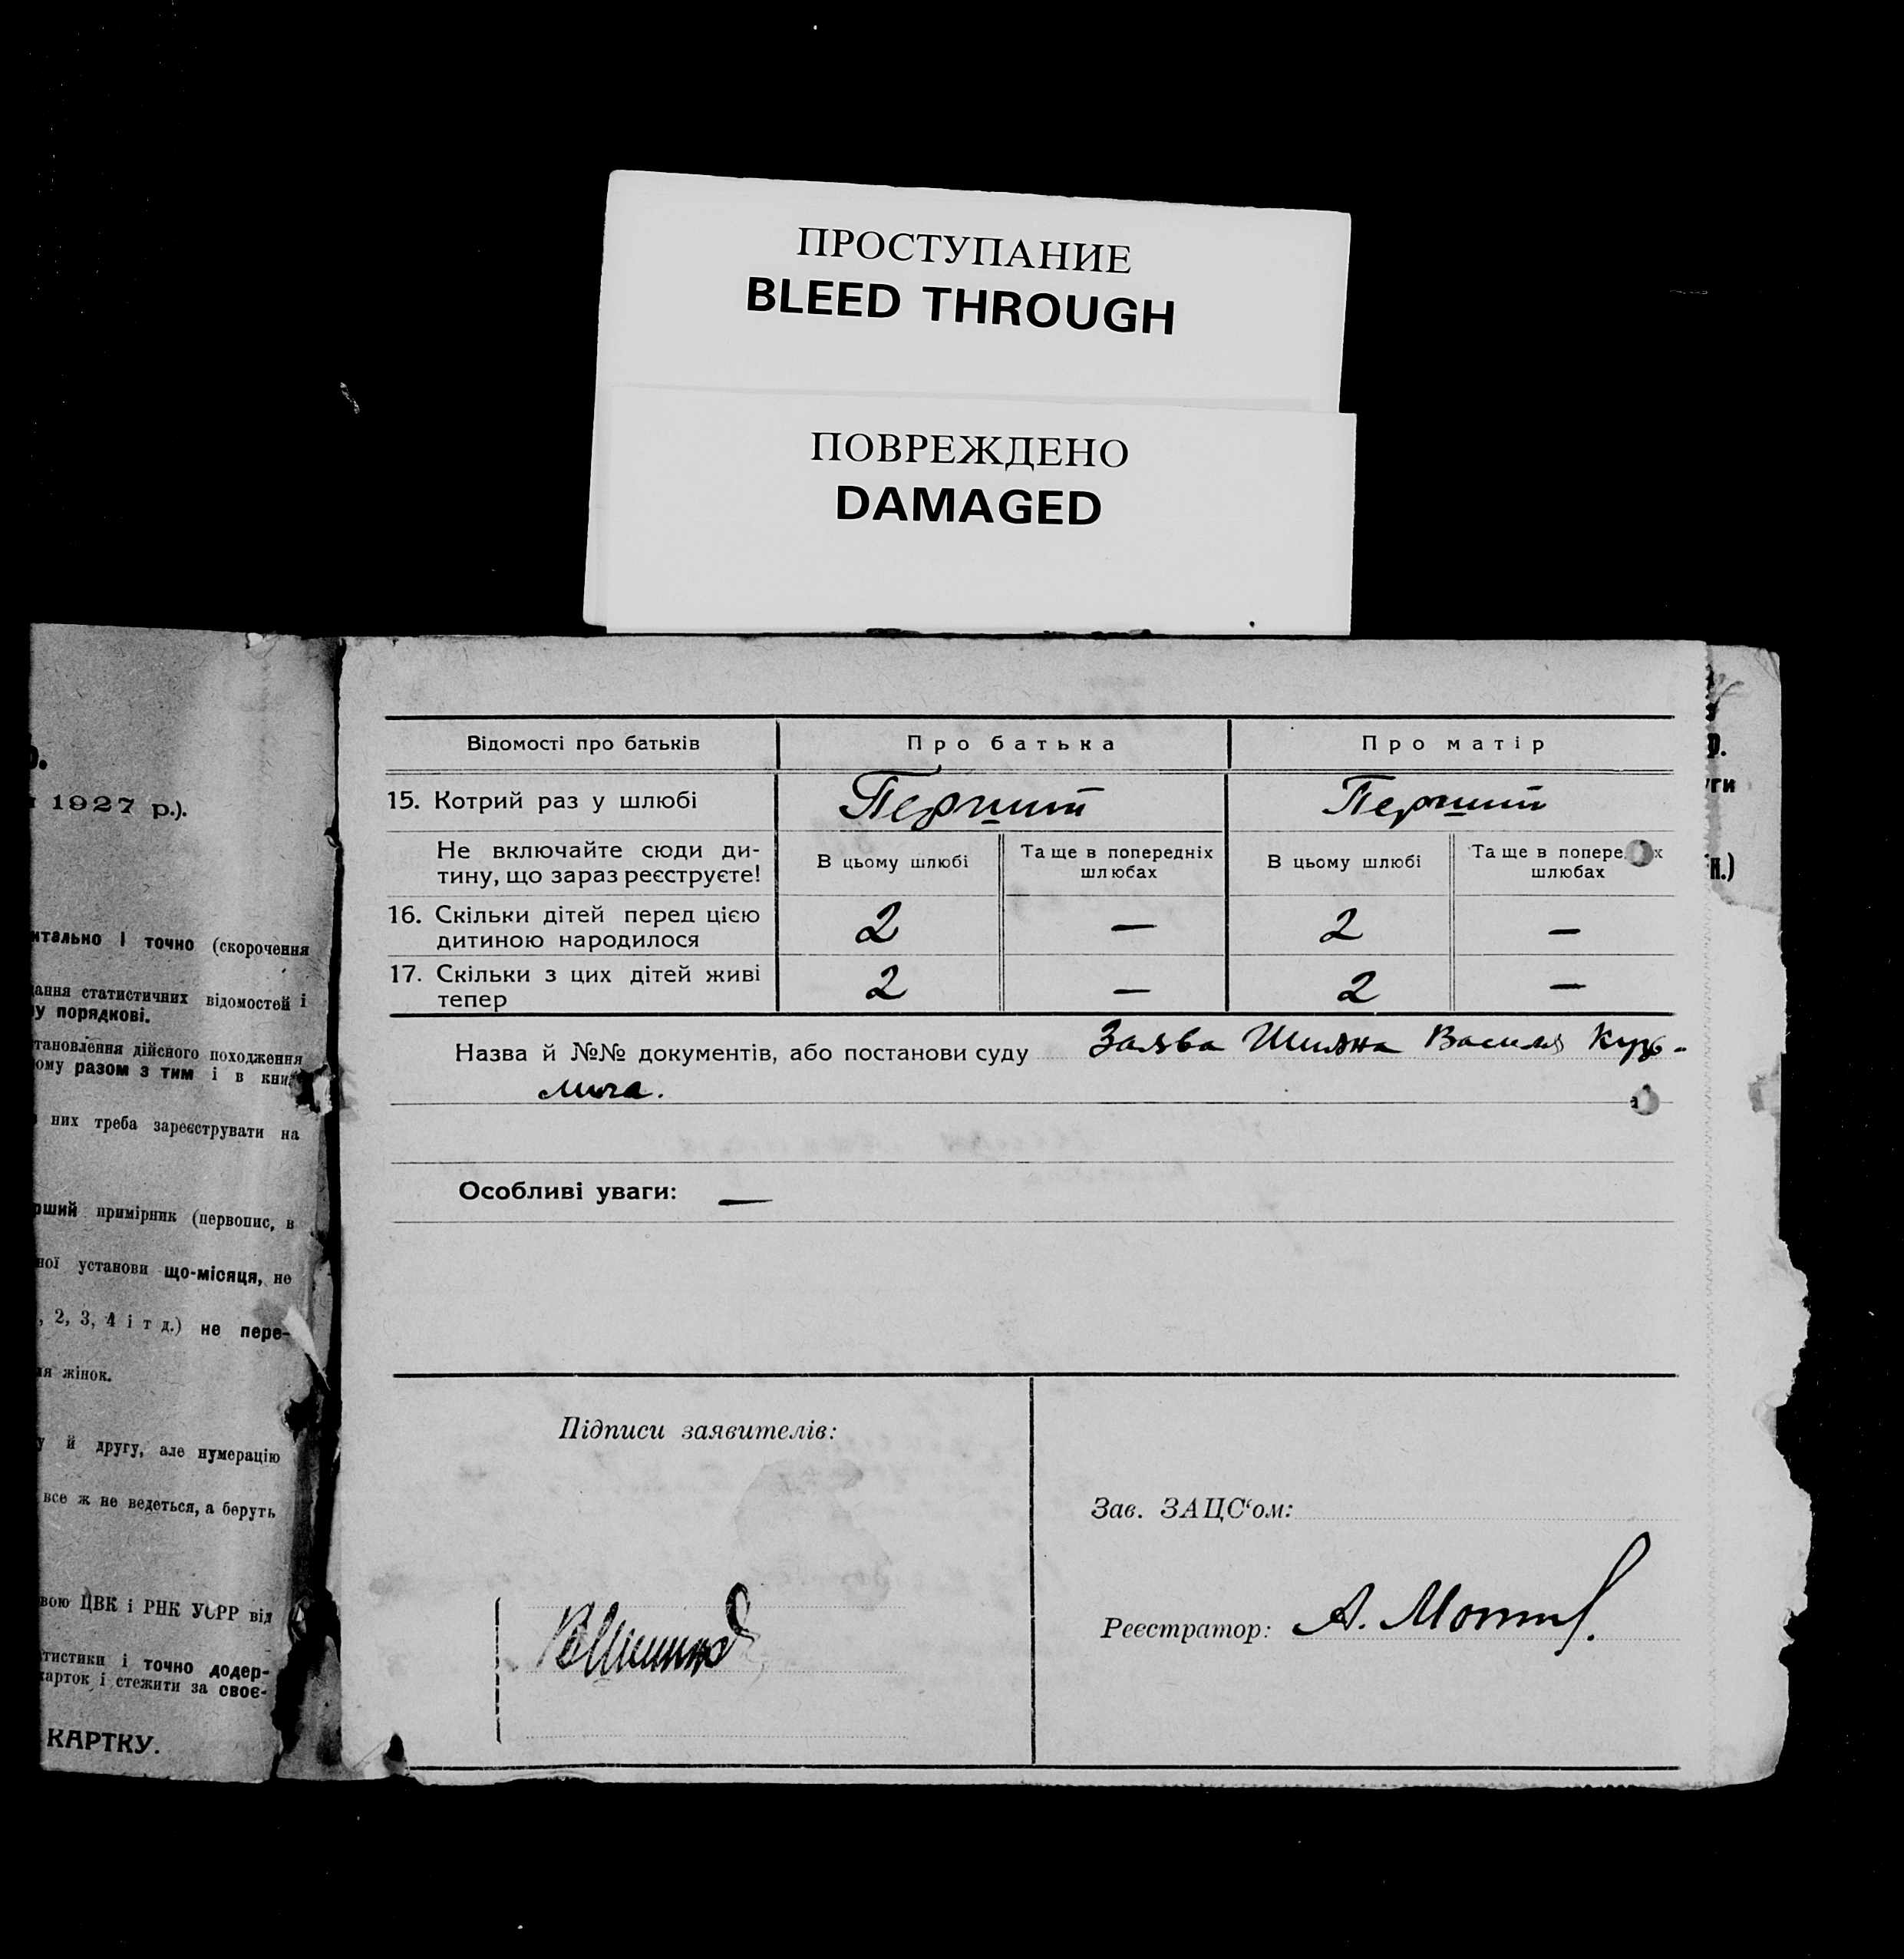 ПРОСТУПАНИЕ
BLEED THROUGH
ПОВРЕЖДЕНО
DAMAGED
1927 р.).
і точно (скорочення
статистичних відомостей і
у порядкові.
дійсного походження
разом з тим і в
них треба зареєструвати на
примірник (первопис, в
установи що-місяця, не
, 2, 3, 4 і т д.) не пере-
жінок.
у й другу, але нумерацію
все ж не ведеться, а беруть
ЦВК і РНК УСРР від
і точно додер-
і стежити за своє-
КАРТКУ.
Відомості про батьків
Про батька
Про матір
15. Котрий раз у шлюбі
Перший
Перший
Не включайте сюди ди-
тину, що зараз реєструєте!
В цьому шлюбі
Та ще в попередніх
шлюбах
В цьому шлюбі
Та ще в
шлюбах
16. Скільки дітей перед цією
дитиною народилося
2 — 2 —
17. Скільки з цих дітей живі
тепер
2 — 2 —
Назва й №№ документів, або постанови суду Заява Василя Кузь-
мича.
Особливі уваги: —
Підписи заявителів:
Зав. ЗАЦС‘ом:
Реєстратор: А.